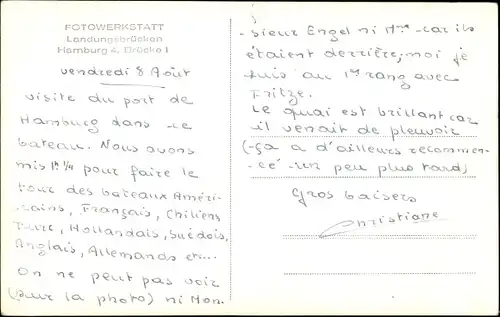 FOTOWERKSTATT
Landungsbrücken
Hamburg 4, Brücke 1
vendredi 8 Août
visite du port de
Hamburg dans le
bateau. Nous avons
mis 1h 1/4 pour faire le
tour des bateaux Améri-
-cains, Français, Chiliens
Turc, Hollandais, Suédois,
Anglais, Allemands etc...
On ne peut pas voir
(sur la photo) ni Mon-
-sieur Engel ni Mme car ils
étaient derrière; moi je
suis au 1er rang avec
Fritze.
Le quai est brillant car
il venait de pleuvoir
(-ça a d'ailleurs recommen-
-cé un peu plus tard)
Gros baisers
Christiane